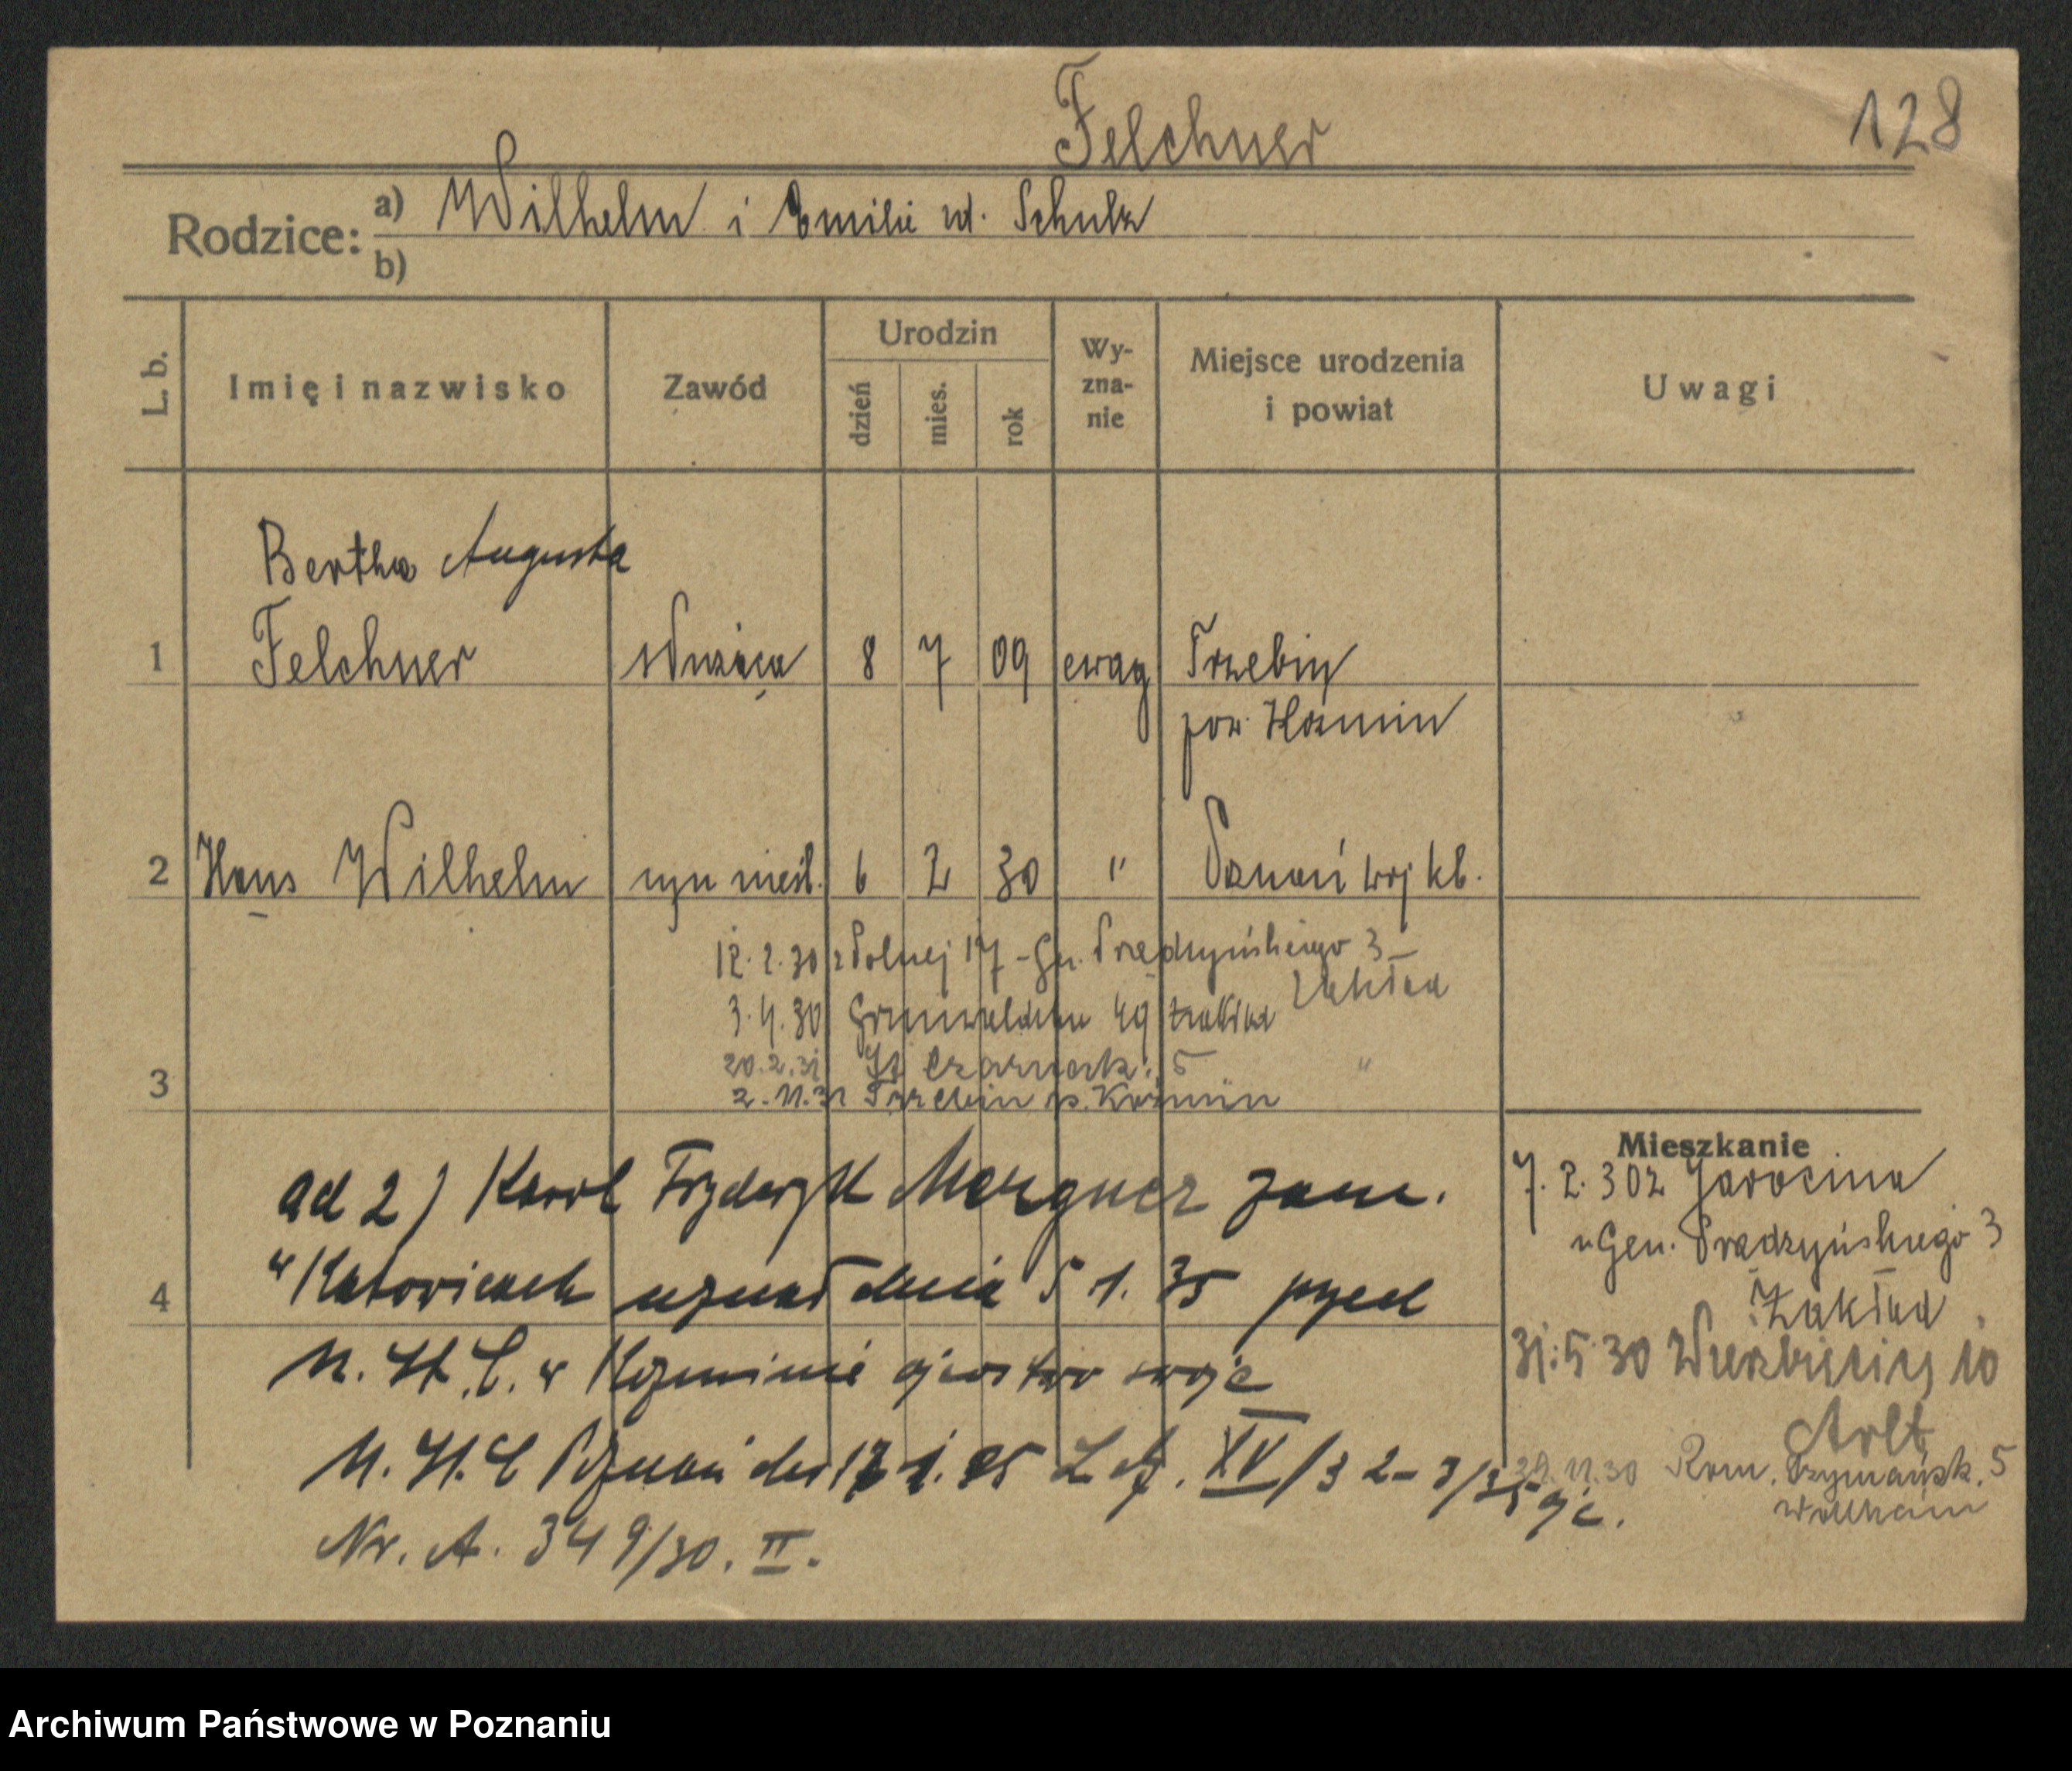 Felchner
128
Rodzice: a) Wilhelm i Emilie zd. Schulz
b)
L. b.
Imię i nazwisko
Zawód
Urodzin
dzień
mies.
rok
Wy-
zna-
nie
Miejsce urodzenia
i powiat
Uwagi
Bertha Augusta
1 Felchner służąca 8 7 09 ewag Trzebin
pow. Kozmin
2 Hans Wilhelm syn nieśl. 6 2 30 " Poznań woj kl.
12.2.30 z Polnej 17 - Gen. Prądzyńskiego 3 -
Zakład
3.4.30 Grunwaldzka 49 Zakład
20.2.31 St Czarnecki 5 "
2.11.31 Trzebin p. Kozmin
3
Mieszkanie
7.2.30 z Jarocina
Gen. Prądzyńskiego 3
Zakład
31.5.30 Wierzbięcicy 10
Arlt
29.11.30 Rom. Szymańsk. 5
Wollheim
ad 2) Karol Fryderyk Mergner zam.
w Katowicach uznał dnia 5 1. 35 przed
4
U. S. C. w Kozminie ojcostwo swoje
U. S. C Poznań 1. 35 XV/3 2-3/35
Nr. A. 349/30. II.
Archiwum Państwowe w Poznaniu